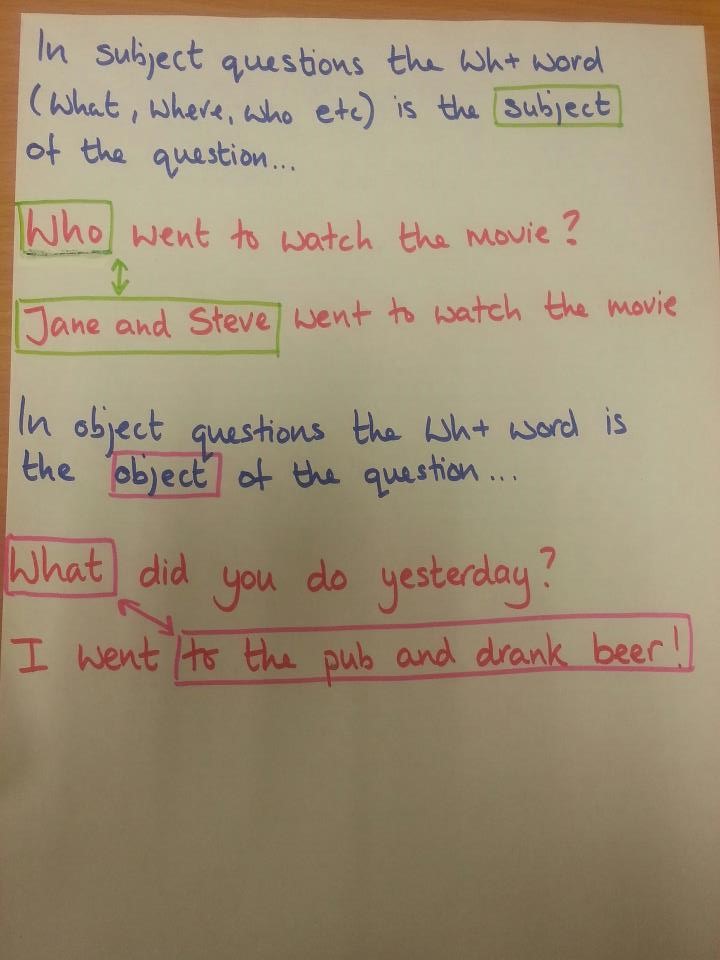 In subject questions the Wh+ word
(What, Where, Who etc) is the subject
of the question...
Who went to watch the movie?
Jane and Steve went to watch the movie
In object questions the Wh+ word is
the object of the question...
What did you do yesterday?
I went to the pub and drank beer!